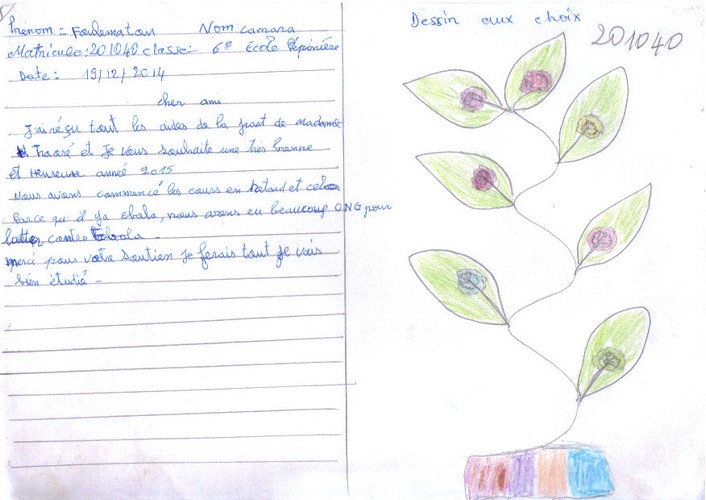 Prénom = Foulematou Nom camara
Matricule: 201040 classe: 6e École Pépinière
Date: 19/12/2014
cher ami
J'ai réçu tout les aides de la part de madame
Traoré et Je vous souhaite une très bonne
et Heureuse anneé 2015
Nous avons commencé les cours en retard et cela
Parce qu'il ya Ebola, nous avons eu beaucoup ONG pour
lutter contre Ebola -
merci pour votre soutien je ferais tout je vais
bien étudié -
Dessin aux choix
201040